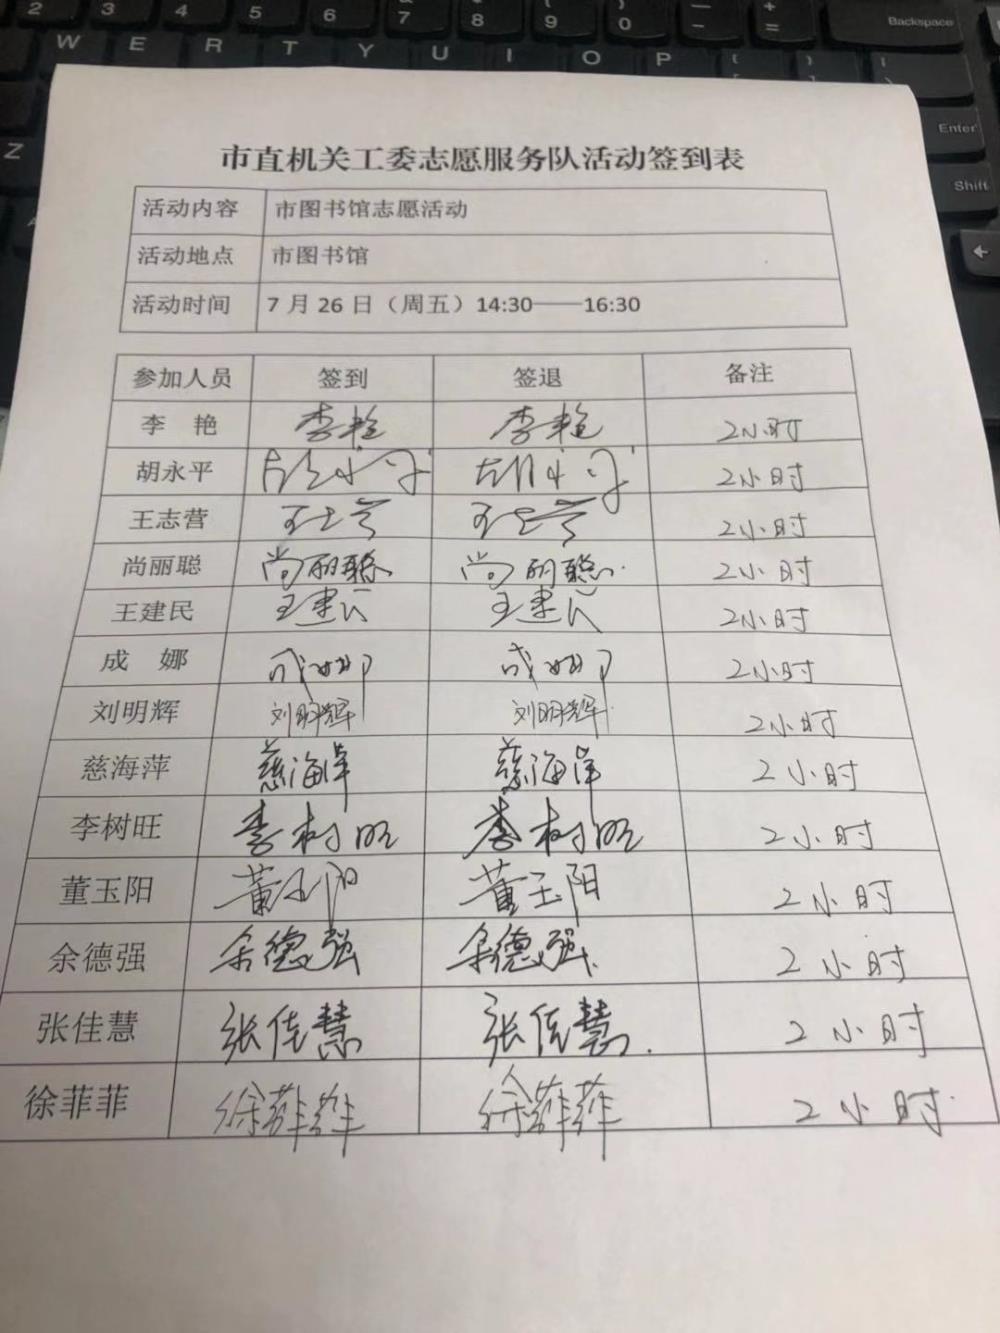 2 3 4 5 6 7 8 9 0 - + =
Backspace
W E R T Y U I O P
Enter
Z
Shift
市直机关工委志愿服务队活动签到表
活动内容 市图书馆志愿活动
活动地点 市图书馆
活动时间 7月26日（周五）14:30——16:30
参加人员 签到 签退 备注
李 艳 李艳 李艳 2小时
胡永平 胡永平 胡永平 2小时
王志营 王志营 王志营 2小时
尚丽聪 尚丽聪 尚丽聪 2小时
王建民 王建民 王建民 2小时
成 娜 成娜 成娜 2小时
刘明辉 刘明辉 刘明辉 2小时
慈海萍 慈海萍 慈海萍 2小时
李树旺 李树旺 李树旺 2小时
董玉阳 董玉阳 董玉阳 2小时
余德强 余德强 余德强 2小时
张佳慧 张佳慧 张佳慧 2小时
徐菲菲 徐菲菲 徐菲菲 2小时